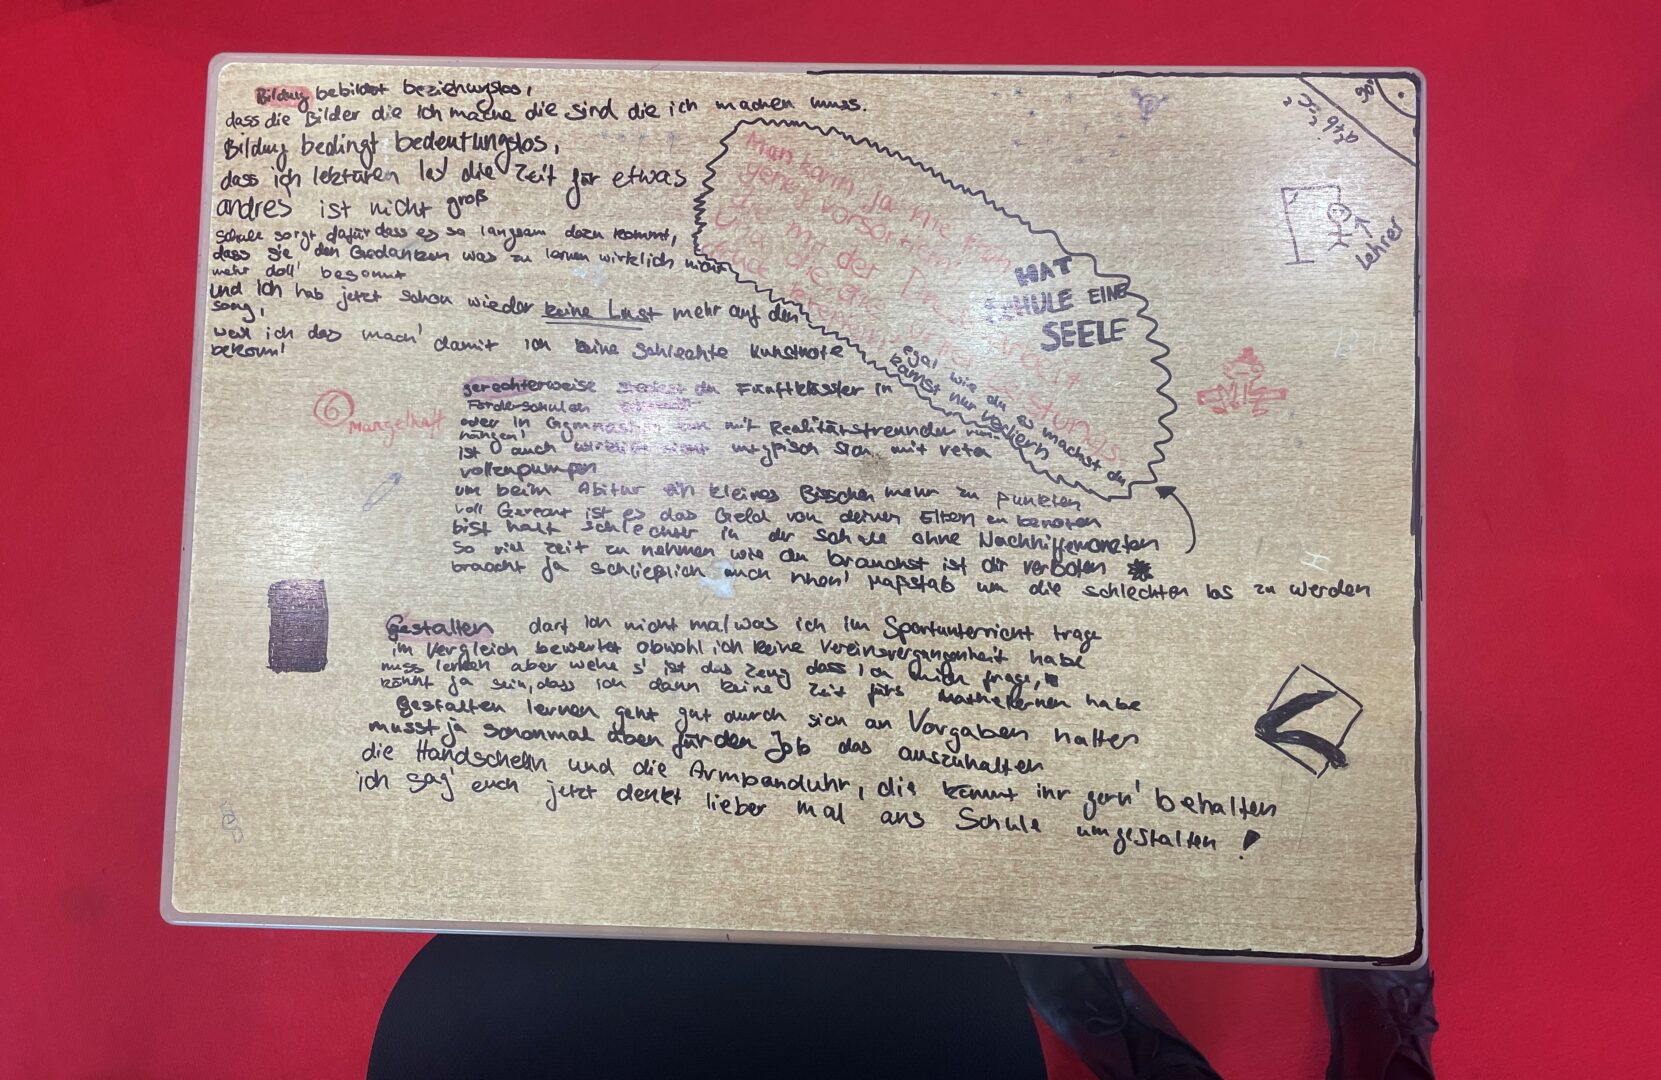 Bildung bebildet beziehungslos,
dass die Bilder die Ich mache die sind die ich machen muss.
Bildung bedingt bedeutungslos,
dass ich lektüren les die Zeit für etwas
andres ist nicht groß
Schule sorgt dafür dass es so langsam dazu kommt,
dass sie den Gedanken was zu lernen wirklich nicht
mehr doll' besonnt
und ich hab jetzt schon wieder keine Lust mehr auf den
song,
weil ich das mach' damit ich keine schlechte Kunstnote
bekomm'
Man kann ja nie
genug vorsortier
die mit der
Und die
HAT
SCHULE EINE
SEELE
egal wie du es machst du
kannst nur verliern
90°
Lehrer
6
mangelhaft
gerechterweise du Fünftklässler in
Förderschulen
oder in Gymnasien mit Realitätsfremden
hängen'
ist auch untypisch sich mit
vollzupumpen
um beim Abitur ein kleines Bisschen mehr zu punkten
voll Gerecht ist es das Geld von deinen Eltern zu benoten
bist halt schlechter in der schule ohne Nachhilfemoneten
So viel Zeit zu nehmen wie du brauchst ist dir verboten
braucht ja schließlich auch nhen' Maßstab um die schlechten los zu werden
Gestalten darf Ich nicht mal was ich im Sportunterricht trage
im Vergleich bewertet obwohl ich keine Vereinsvergangenheit habe
muss lernen aber wehe s' ist das Zeug dass ich mich frage,
könnt ja sein, dass ich dann keine Zeit fürs Mathelernen habe
Gestalten lernen geht gut durch sich an Vorgaben halten
musst ja schonmal üben für den Job das auszuhalten
die Handschelln und die Armbanduhr, die könnt ihr gern' behalten
ich sag' euch jetzt denkt lieber mal ans Schule umgestalten!